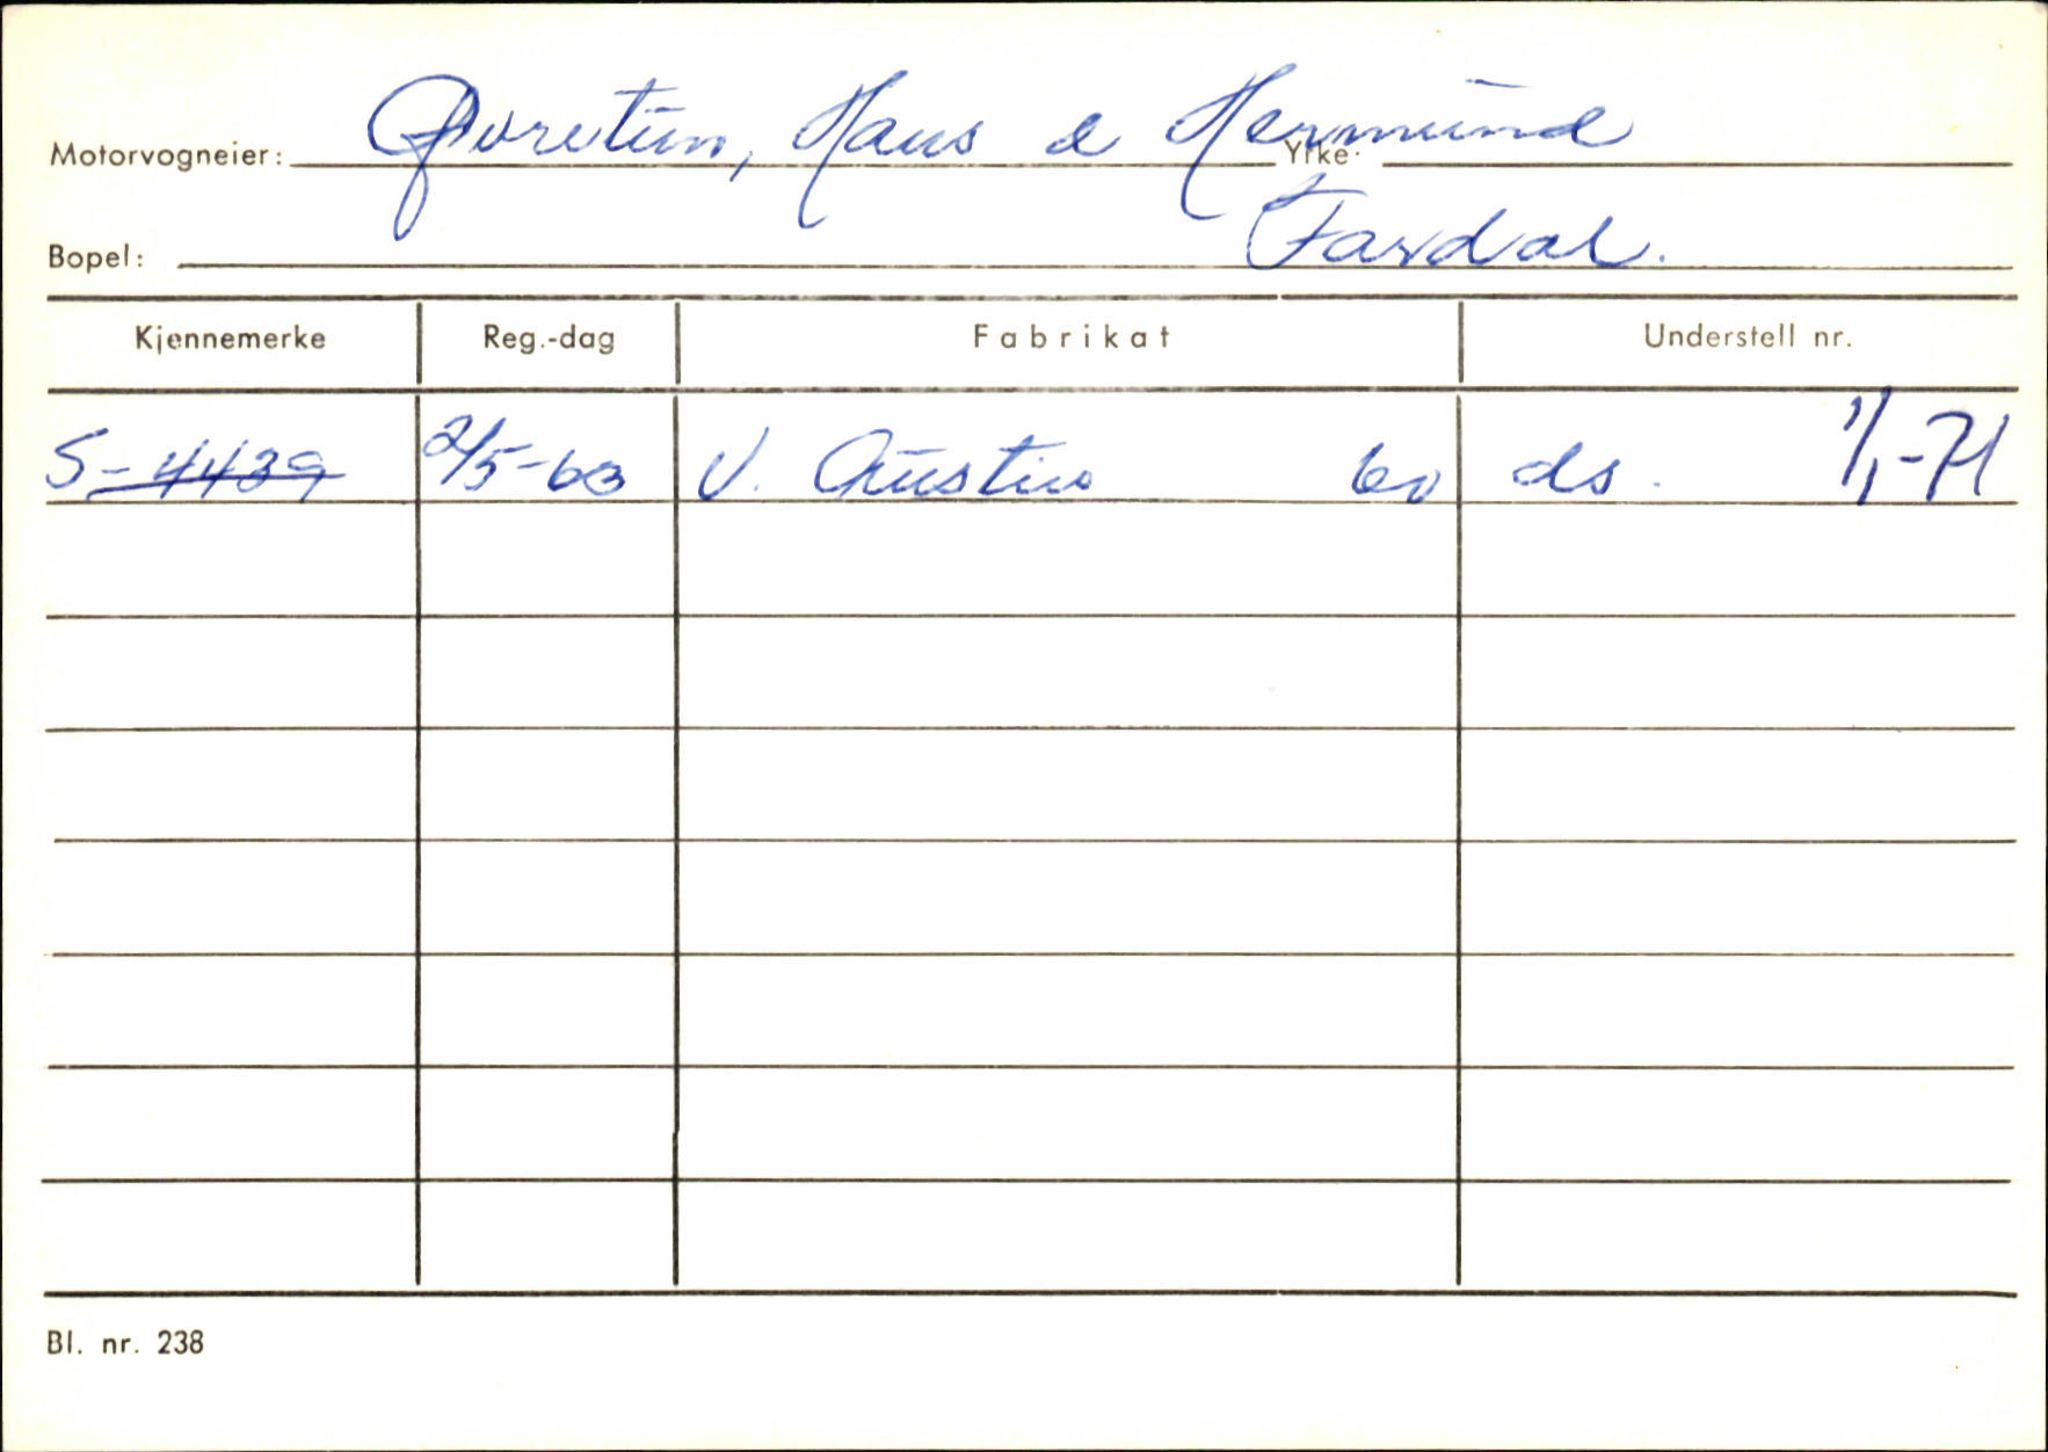 Motorvogneier: Øvretun, Hans & Hermund Yrke:
Bopel: Fardal.
Kjennemerke Reg.-dag Fabrikat Understell nr.
S-4439 2/5-63 V. Austin 60 ds. 1/1-71
Bl. nr. 238